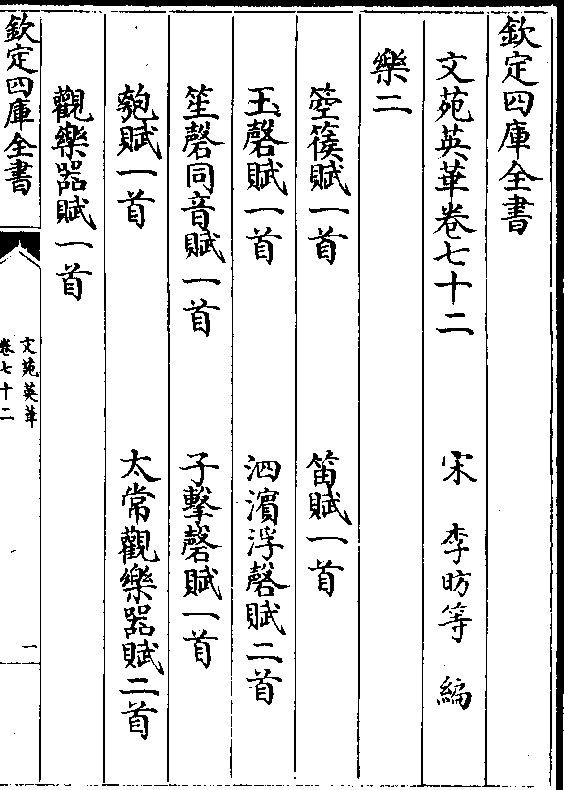 欽定四庫全書
文苑英華卷七十二
宋 李昉等 編
樂二
箜篌賦一首 笛賦一首
玉磬賦一首 泗濱浮磬賦二首
笙磬同音賦一首 子擊磬賦一首
匏賦一首 太常觀樂器賦二首
觀樂器賦一首
欽定四庫全書
文苑英華
卷七十二
一